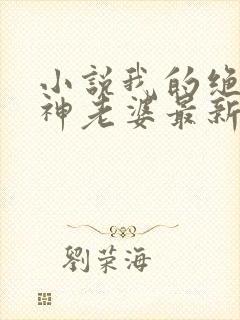 小説我的绝
神老婆最新
劉荣海